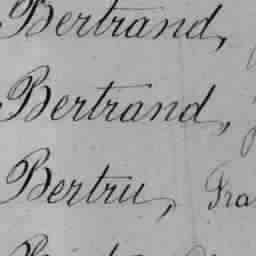 Bertrand,
Bertrand,
Bertru, Fra